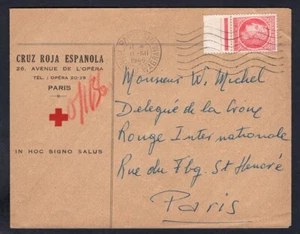 CRUZ ROJA ESPANOLA
25, AVENUE DE L'OPÉRA
PARIS
IN HOC SIGNO SALUS
Monsieur W. Michel
Delegué de la Croix
Rouge Internationale
Rue du Fbg. St Honoré
Paris